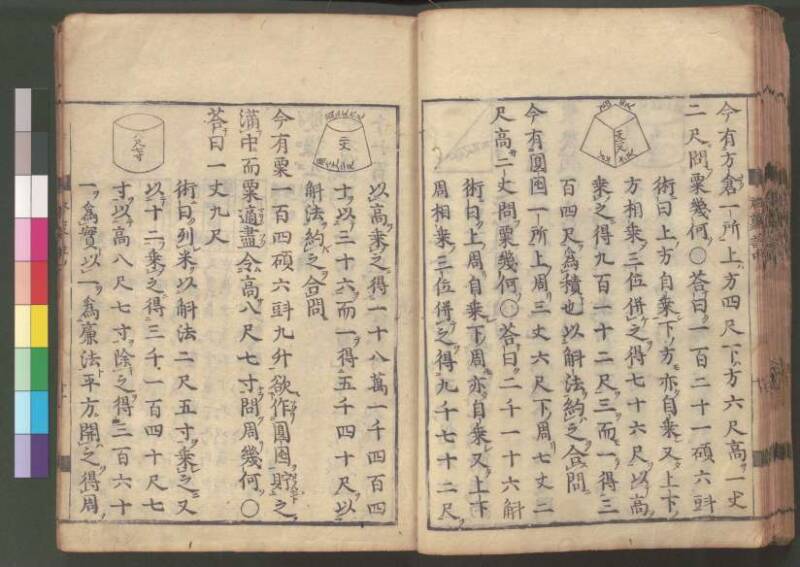 今有方倉一所上方四尺下方六尺高一丈
二尺問粟幾何〇荅曰一百二十一碩六斗
術曰上方自乗下方亦自乗又上下
方相乗三位併之得七十六尺以高
乗之得九百一十二尺三而一得三
百四尺為積也以斛法約之合問
今有圓囷一所上周三丈六尺下周七丈二
尺高二丈問粟幾何〇荅曰二千一十六斛
術曰上周自乗下周亦自乗又上下
周相乗三位併之得九千七十二尺
以高乗之得一十八萬一千四百四
十以三十六而一得五千四十尺以
斛法約之合問
今有粟一百四碩六斗九升欲作圓囷貯之
滿中而粟適盡令高八尺七寸問周幾何〇
荅曰一丈九尺
術曰列米以斛法二尺五寸乗之又
以十二乗之得三千一百四十尺七
寸以高八尺七寸除之得三百六十
一為實以一為廉法平方開之得周